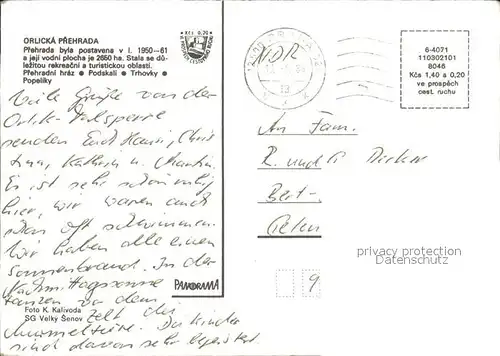 ORLICKÁ PŘEHRADA
Přehrada byla postavena v l. 1950–61
a její vodní plocha je 2650 ha. Stala se dů-
ležitou rekreační a turistickou oblastí.
Přehradní hráz ● Podskalí ● Trhovky ●
Popelíky
Kčs 0,20
NDR
6-4071
110302101
8046
Kčs 1,40 a 0,20
ve prospěch
cest. ruchu
Viele Grüße von der
Orlik-Talsperre
senden Euch Hansi, Chris
tina, Kathrin u. Martin.
Es ist sehr schön ruhig
hier, wir waren auch
schon oft schwimmen.
Wir haben alle einen
Sonnenbrand. In der
Nachmittagssonne
tanzen vor dem
Zelt die
Murmeltiere. Die Kinder
sind davon sehr begeistert.
An Fam.
R. und G.
Bert-
privacy protection
Datenschutz
9
PANORAMA
Foto K. Kalivoda
SG Velký Šenov